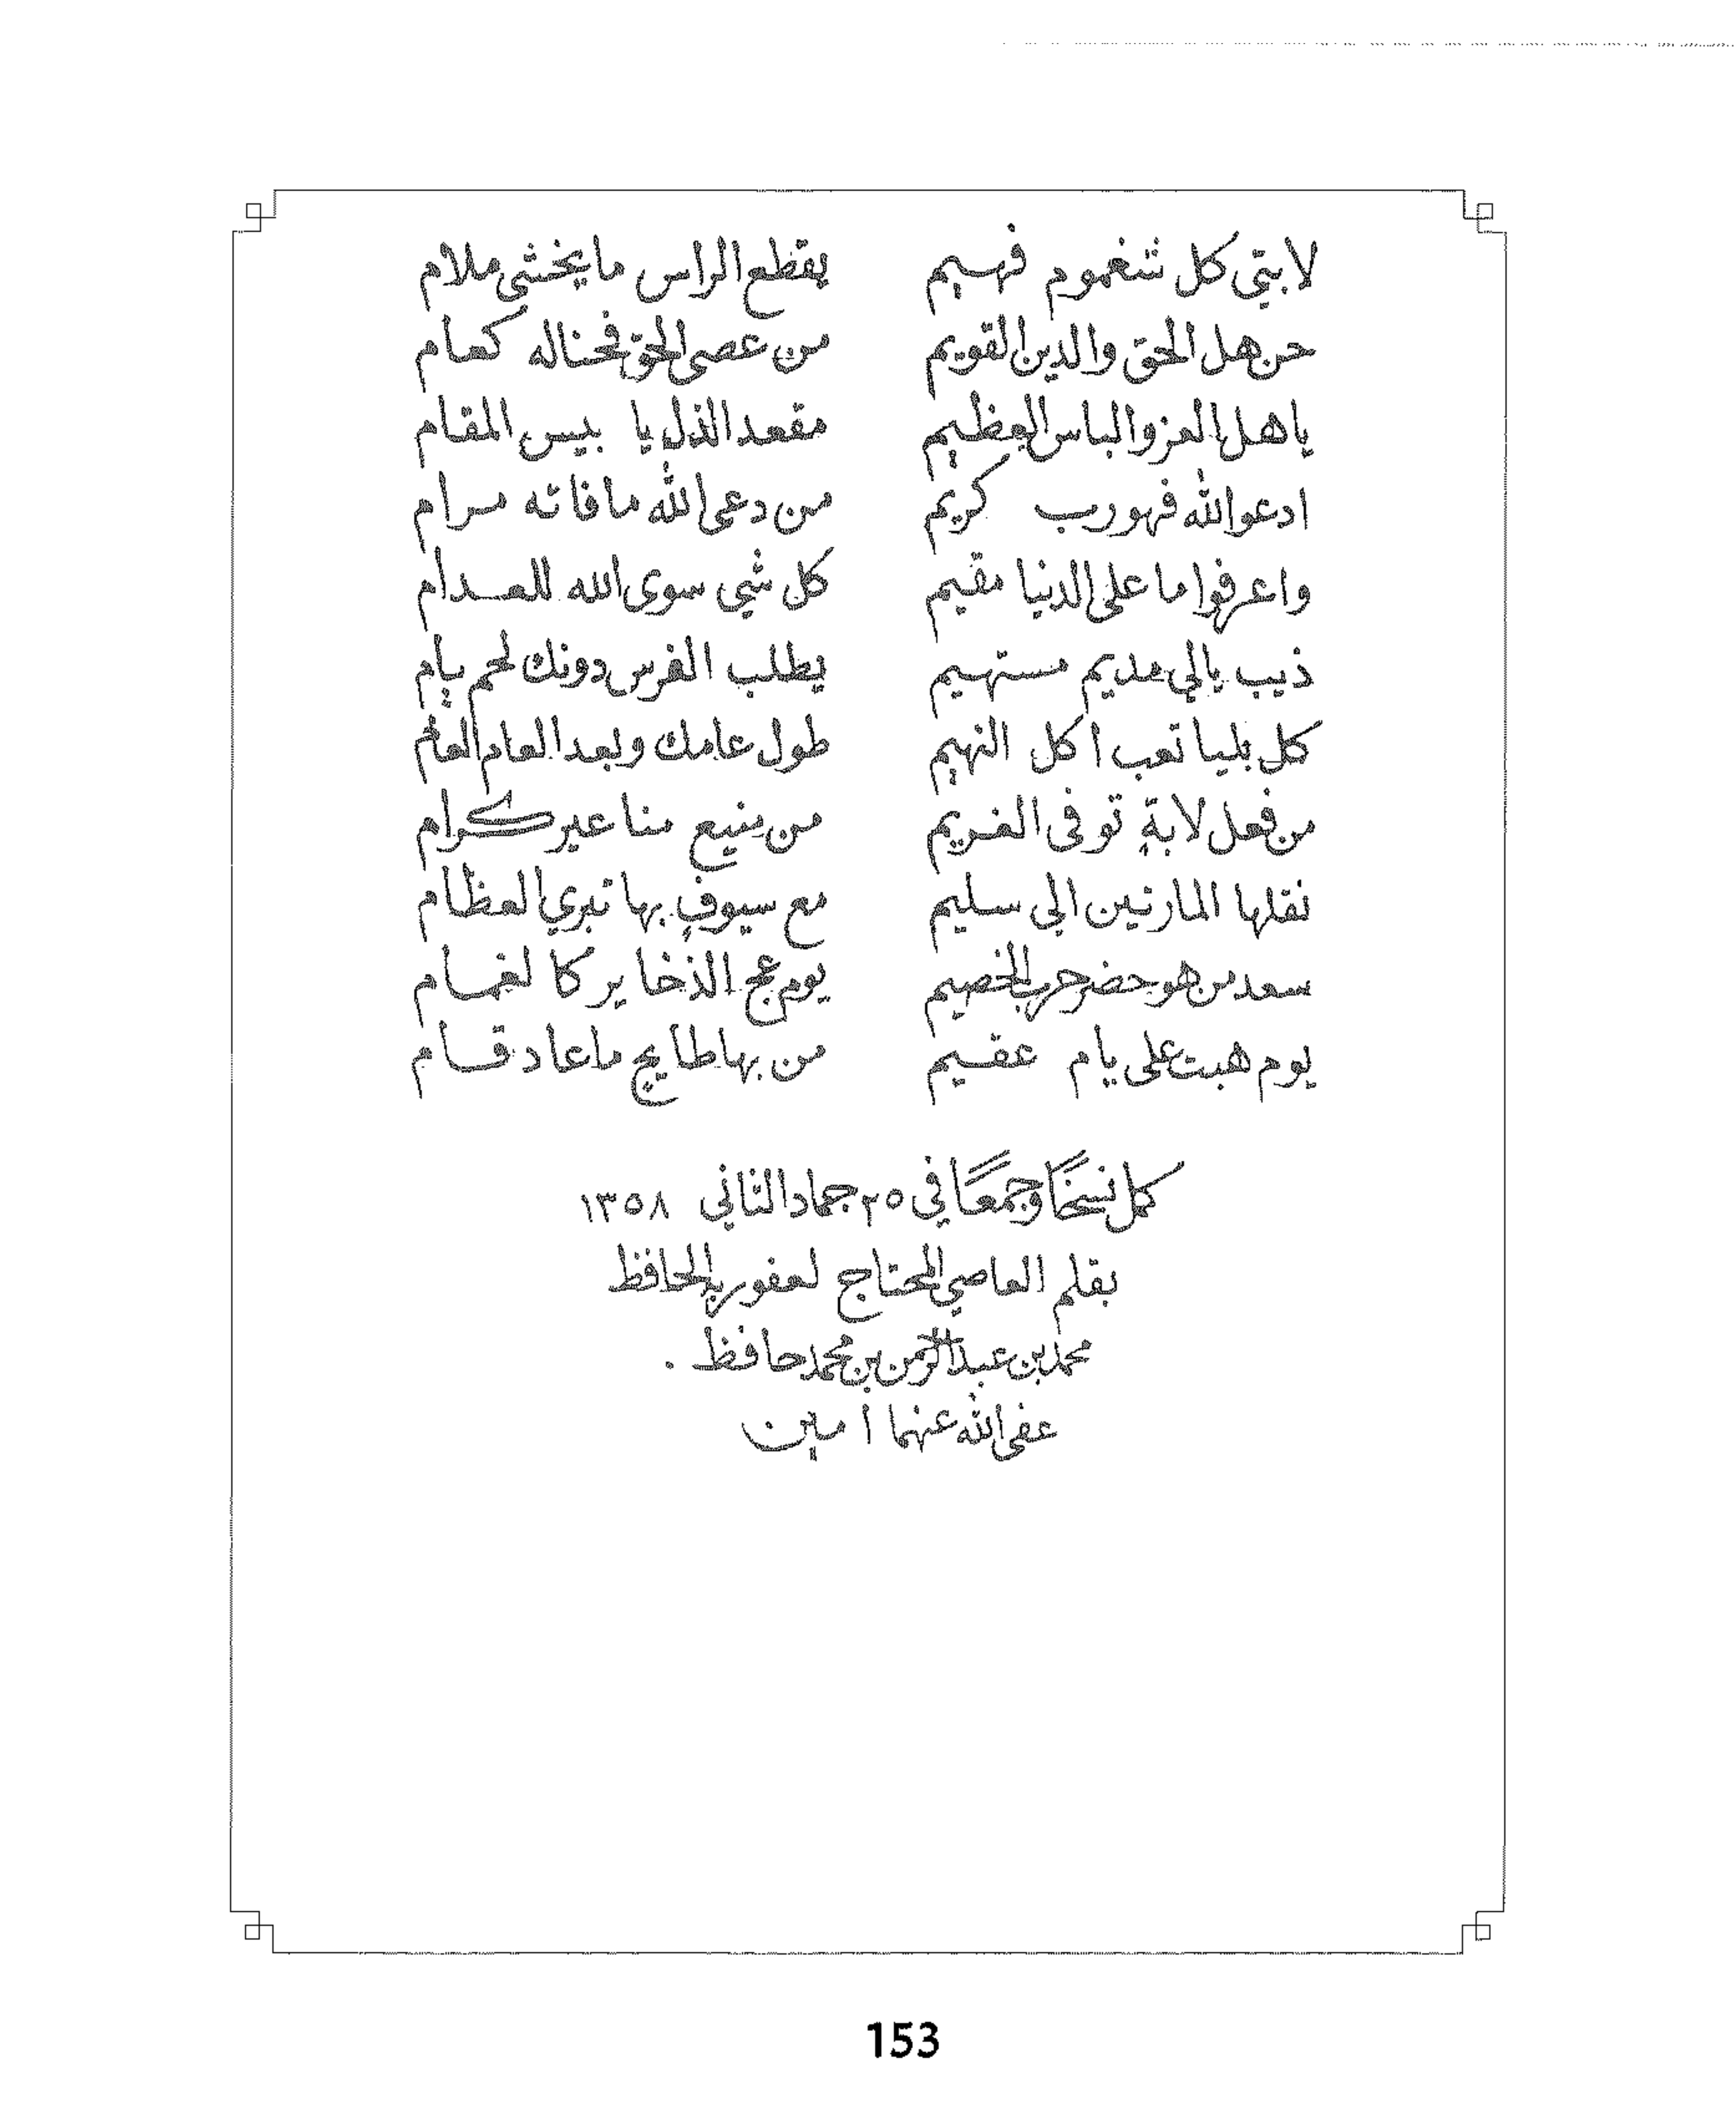 لابتي كل شغموم فهيم يقطع الراس ما يخشى ملام
حن هل الحق والدين القويم من عصى الحق فحناله كعام
يا هل العز والباس العظيم مقعد الذل يا بيس المقام
ادعوا الله فهو رب كريم من دعى الله ما فاته مرام
واعرفوا ما على الدنيا مقيم كل شي سوى الله للعدام
ذيب يالي مديم مستهيم يطلب الفرس دونك لحم يام
كل بليا تعب اكل النهيم طول عامك وبعد العام العام
من فعل لابةٍ توفى الغريم من منيع مناعير كرام
نقلها المارتين الي سليم مع سيوفٍ بها تبري العظام
سعد من هو حضر حرب الخصيم يوم عج الذخاير كالغمام
يوم هبت على يام عقيم من بها طايحٍ ما عاد قام
كمل نسخًا وجمعًا في ٢٥ جماد الثاني ١٣٥٨
بقلم العاصي المحتاج لعفو ربه الحافظ
محمد بن عبد الرحمن بن محمد حافظ .
عفى الله عنهما امين
153